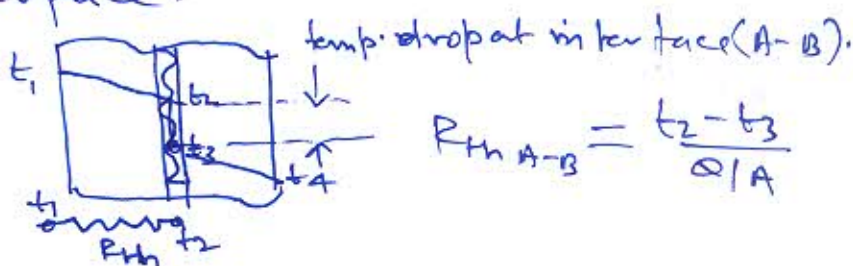 temp. drop at interface (A-B).
t1
t2
t3
t4
R th A-B = t2 - t3 / Q/A
t1
t2
Rth